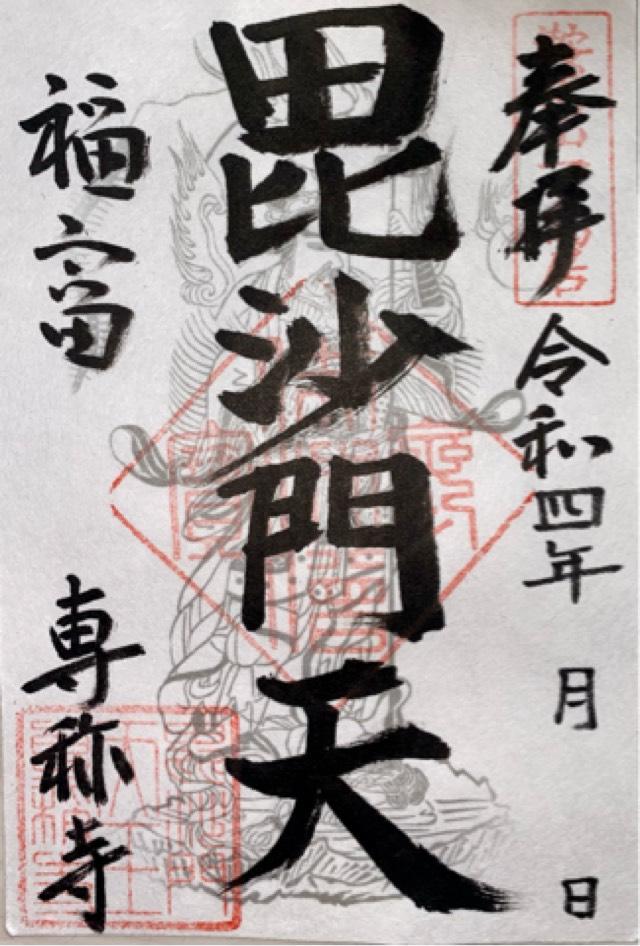 奉拝
令和四年 月 日
毘沙門天
福冨
専称寺